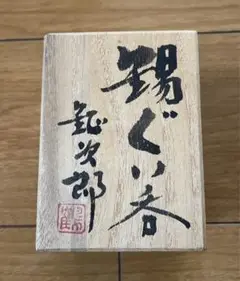 錫ぐい呑
鉦次郎